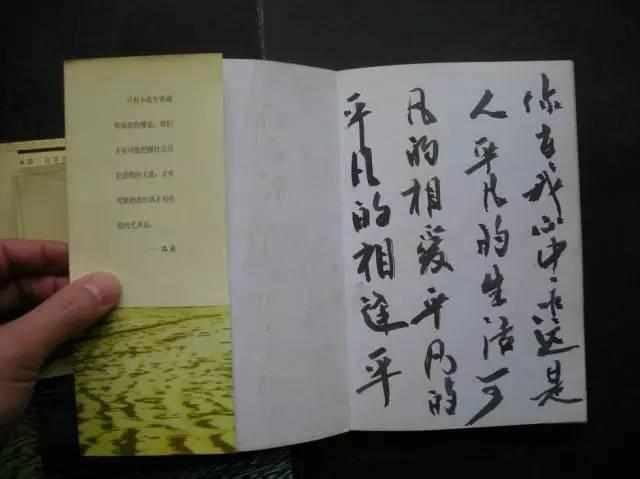 只有不丧失普通
劳动者的感觉，我们
才有可能把握社会历
史进程的主流，才有
可能创造出真正有价
值的艺术品。
——路遥
平凡的相逢平
凡的相爱平凡的
人平凡的生活可
你在我心中永远是